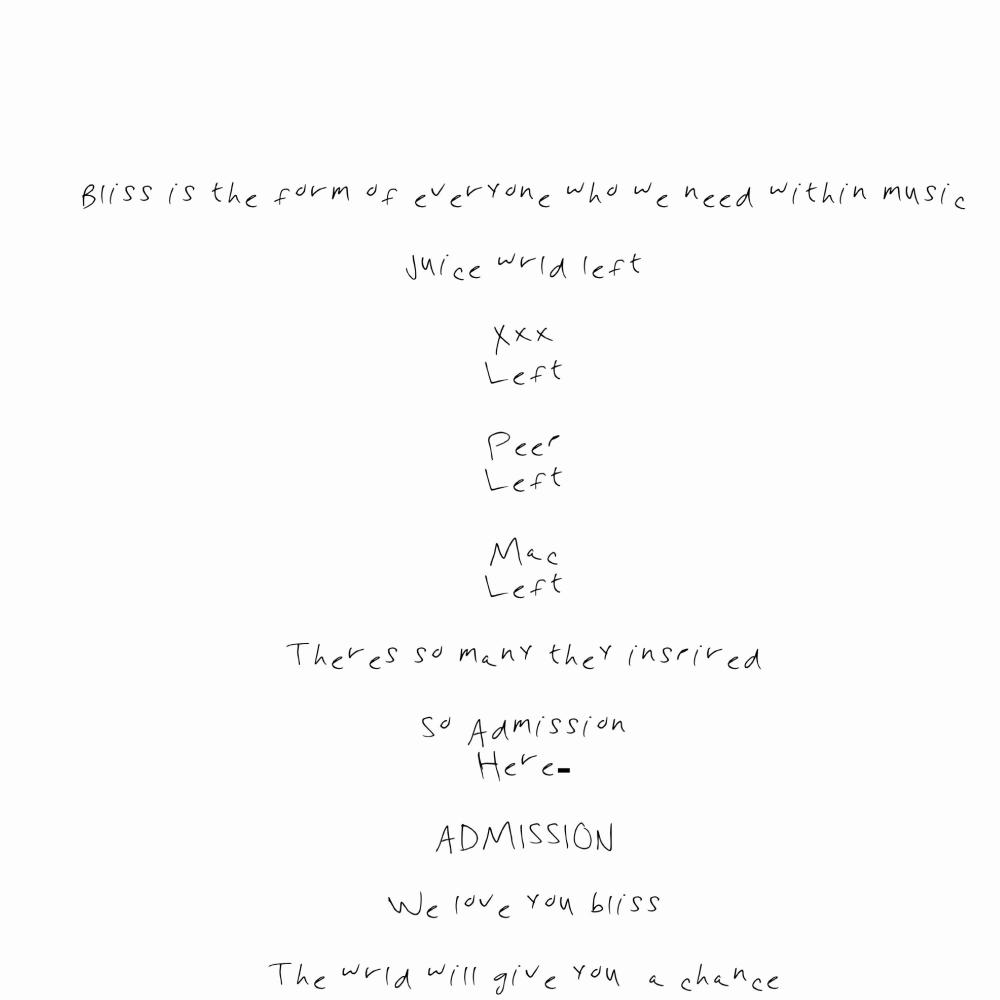 Bliss is the form of everyone who we need within music
Juice wrld left
Xxx
Left
Peer
Left
Mac
Left
Theres so many they inspired
So Admission
Here-
ADMISSION
We love you bliss
The wrld will give you a chance